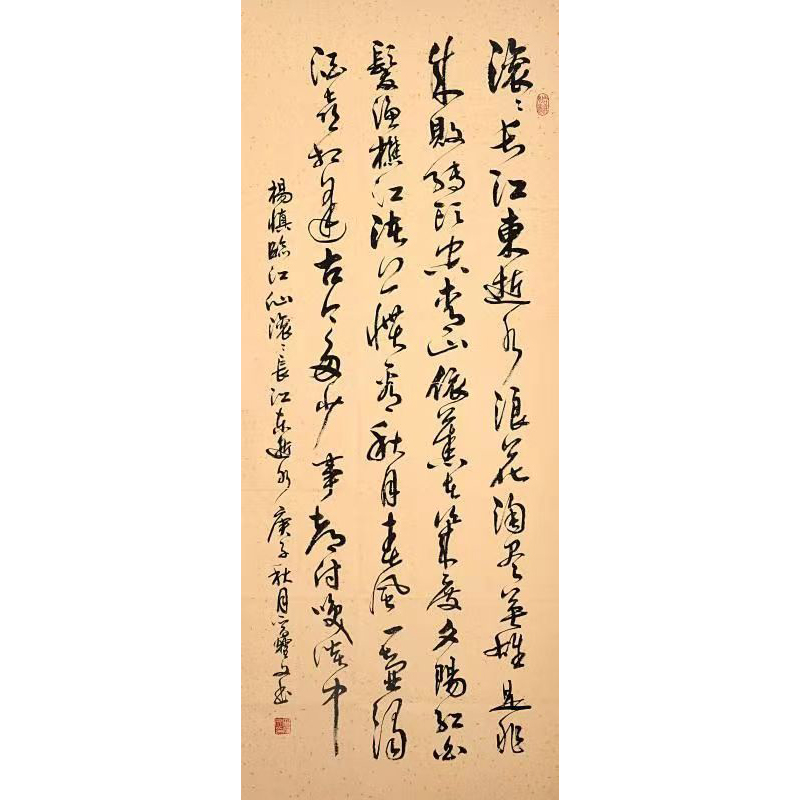 滚〻长江東逝水浪花淘尽英雄是非
成敗转头空青山依舊在几度夕陽红白
髮渔樵江渚上惯看秋月春风一壶濁
酒喜相逢古今多少事都付笑谈中
楊慎臨江仙滚〻長江东逝水庚子秋月